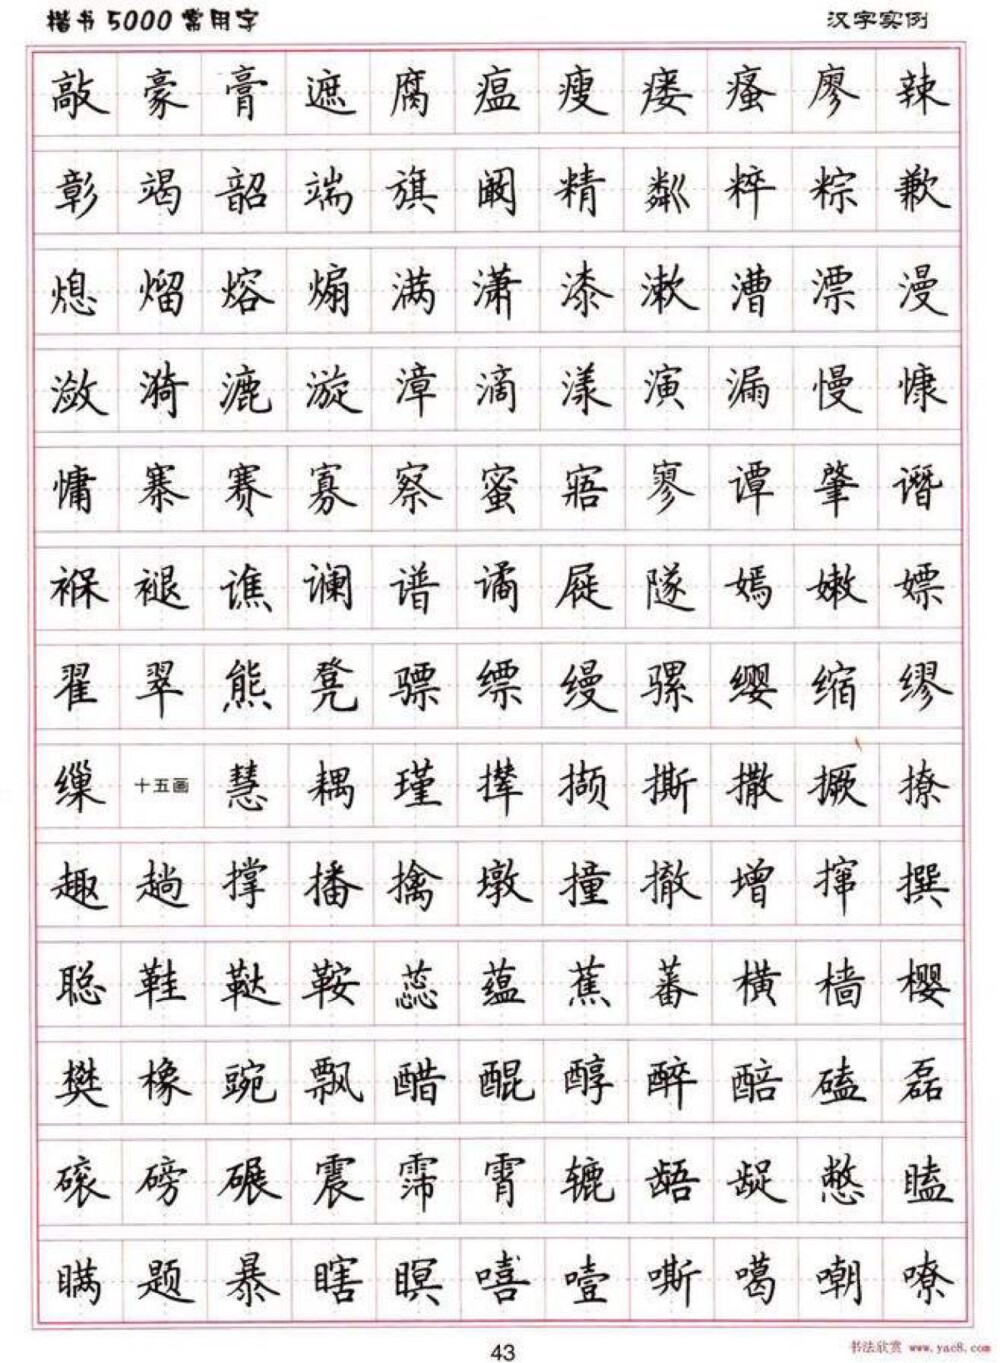 楷书5000常用字 汉字实例
敲豪膏遮腐瘟瘦瘘瘙廖辣
彰竭韶端旗阚精粼粹粽歉
熄熘熔煽满潇漆漱漕漂漫
潋漪漉漩漳滴漾演漏慢慷
慵寨赛寡察蜜寤寥谭肇谮
褓褪谯谰谱谲屣隧嫣嫩嫖
翟翠熊凳骠缥缦骡缨缩缪
缫十五画慧耦瑾撵撷撕撒撅撩
趣趟撑播擒墩撞撤增撺撰
聪鞋鞑鞍蕊蕴蕉蕃横樯樱
樊橡豌飘醋醌醇醉醅磕磊
磙磅碾震霈霄辘龉龊憋瞌
瞒题暴瞎瞑嘻噎嘶噶嘲嘹
43
书法欣赏 www.yac8.com